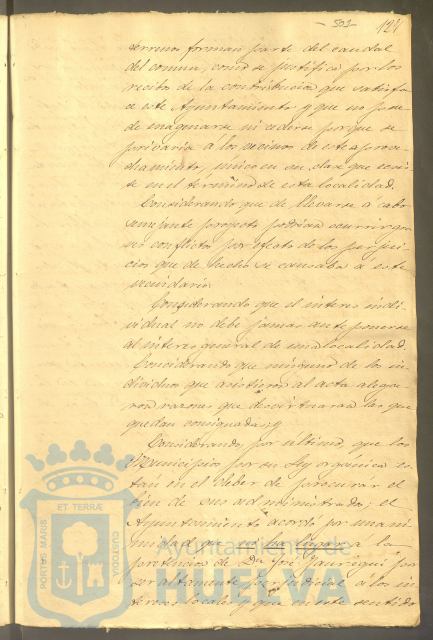 - 503 -
121
terrenos forman parte del caudal
del comun, como se justifica por los
recibos de la contribucion que satisface
este Ayuntamiento y que no pue
de enagenarse ni cederse porque se
privaria á los vecinos de este aprove
chamiento, unico en su clase que exis
te en el termino de esta localidad.
Considerando que de llevarse a cabo
semejante proyecto podrian ocurrir
conflictos por efecto de los perjui
cios que de hecho se causaba a este
vecindario.
Considerando que el interes indi
vidual no debe jamas anteponerse
al interes general de una localidad.
Considerando que ninguno de los in
dividuos que asistieron al acta alega
ron razones que desvirtuaran las que
quedan consignadas; y
Considerando, por último, que los
Municipios por su Ley orgánica es
tan en el deber de procurar el
bien de sus administrados; el
Ayuntamiento acordó por unani
midad que no ha lugar á la
pretencion de Dn José Jauregui por
ser altamente perjudicial á los in
tereses locales y que en este sentido
PORTUS MARIS
ET TERRÆ
CUSTODIA
Ayuntamiento de
HUELVA